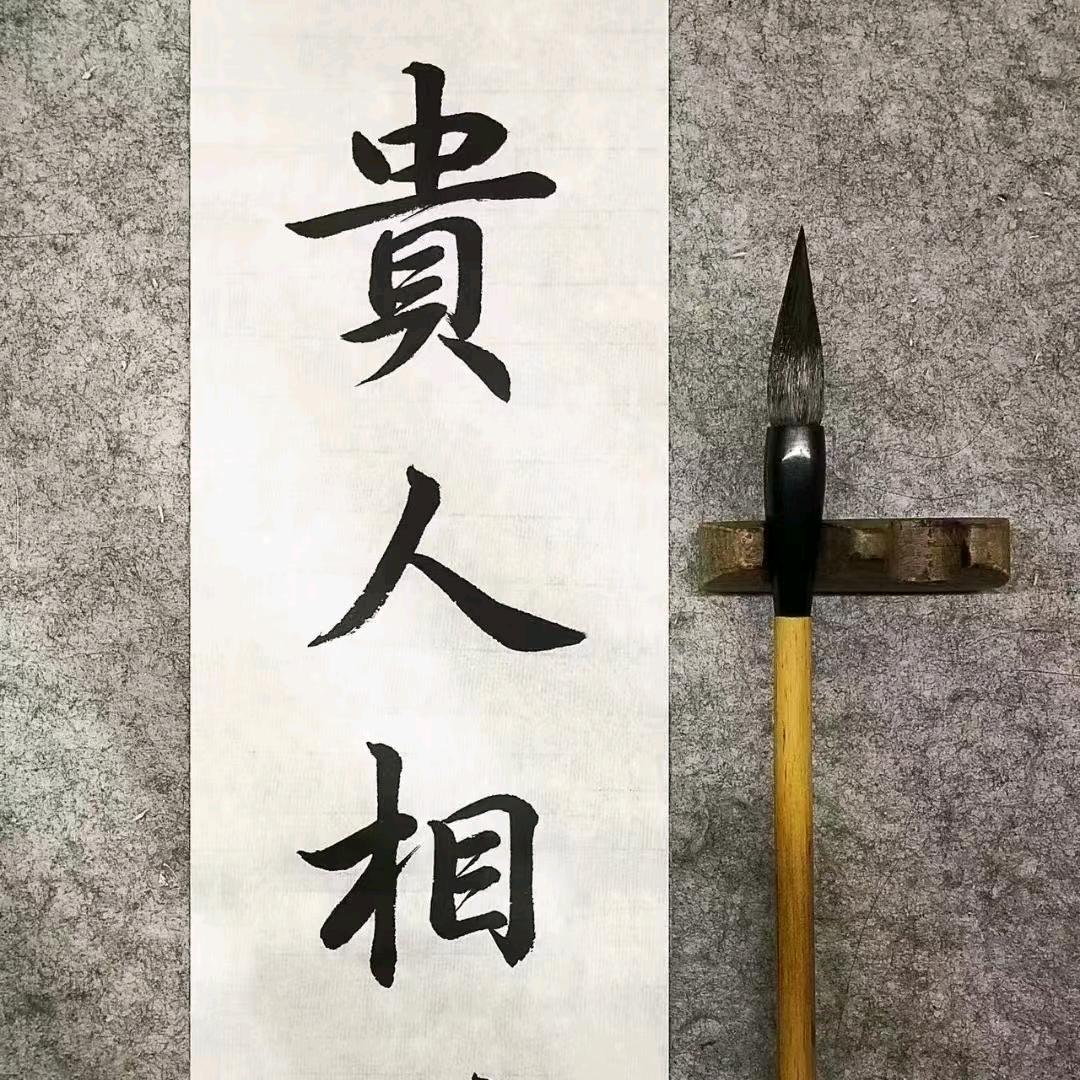 貴人相